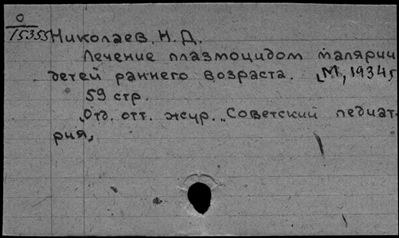 0
15355 Николаев, Н.Д.
Лечение плазмоцидом малярии
детей раннего возраста. М, 1934,
59 стр.
Отд. отт. жур. „Советский педиат-
рия,